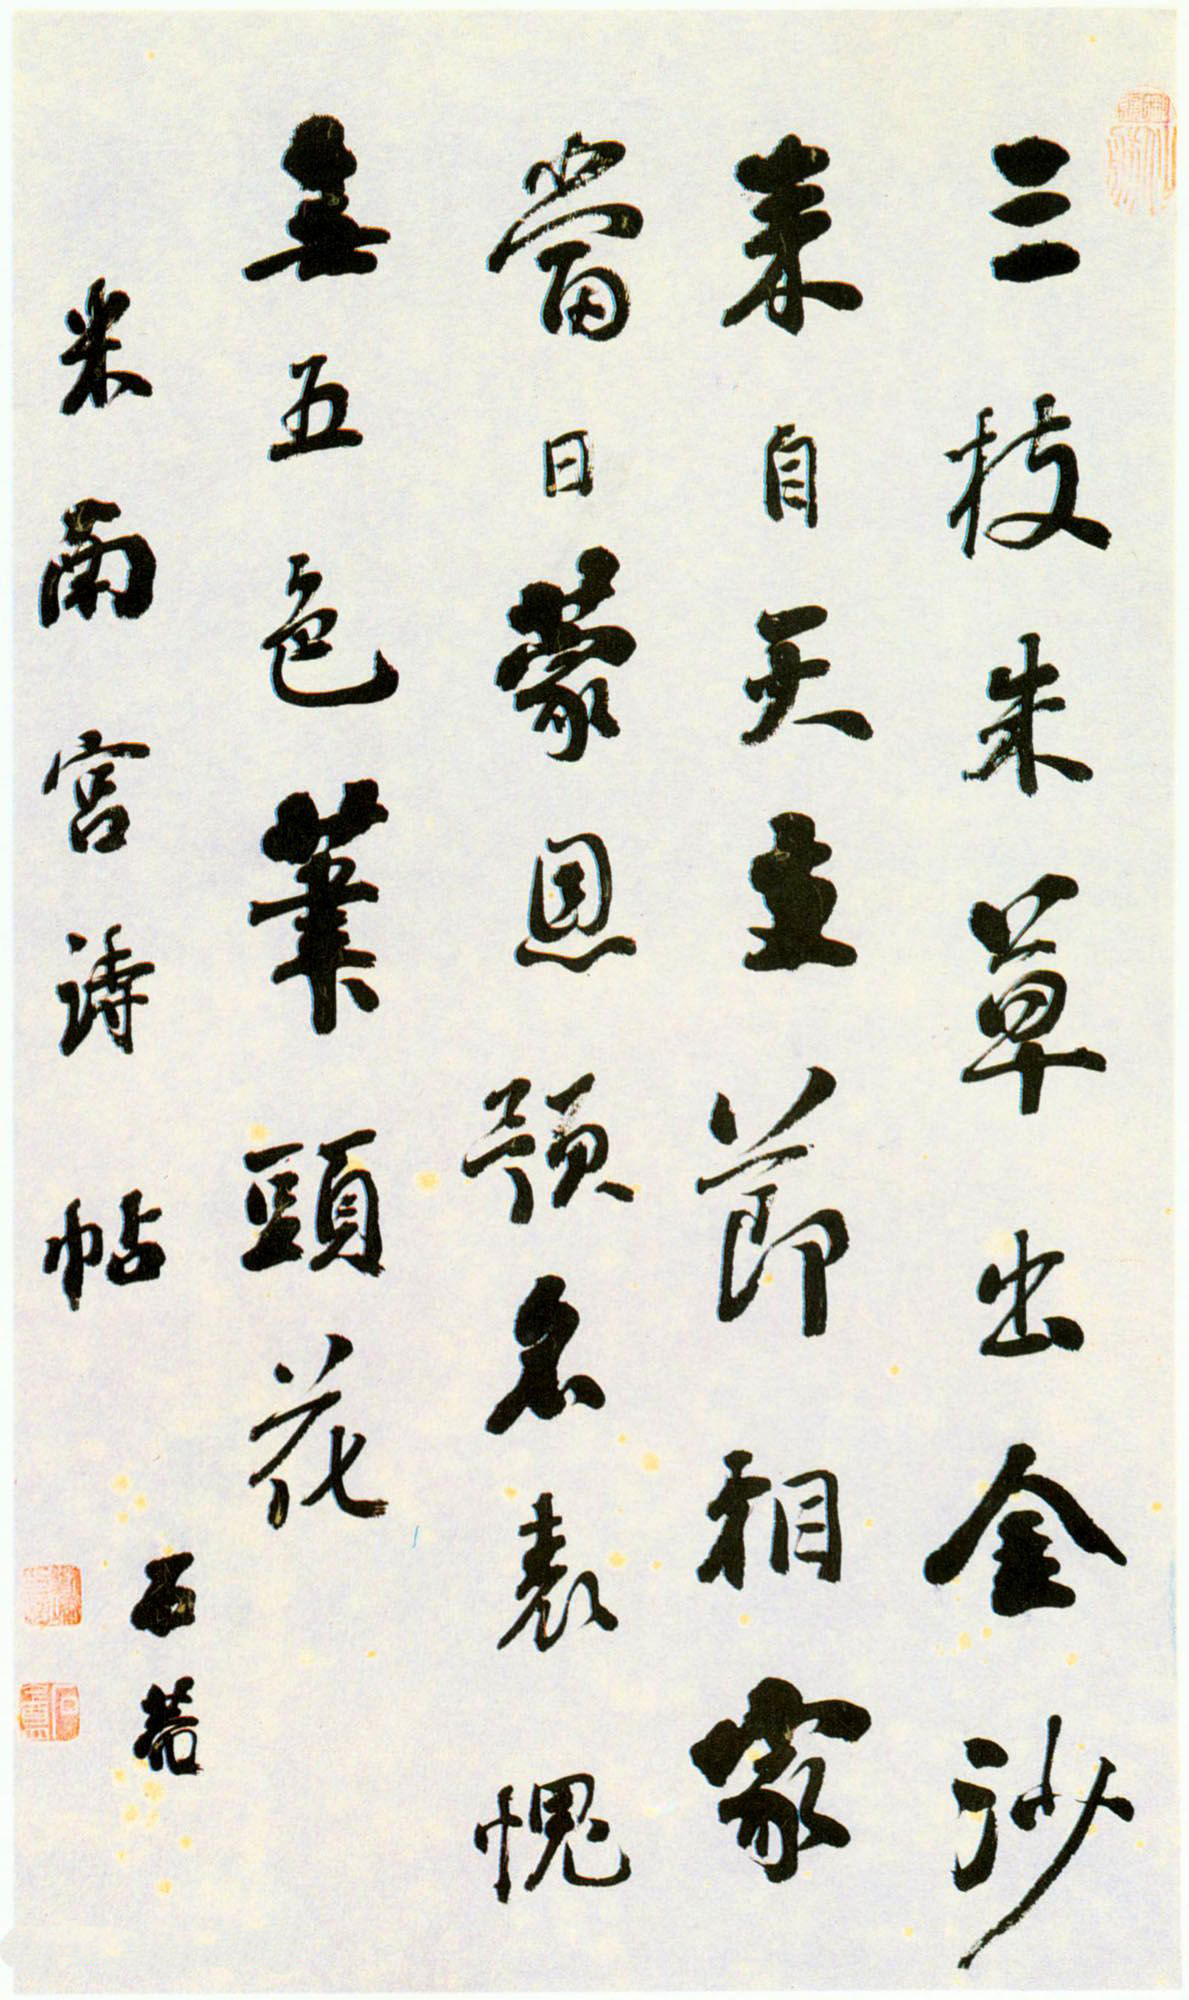 三枝朱草出金沙
来自天支節相家
當日蒙恩預名表
愧無五色筆頭花
米南宮詩帖
石菴